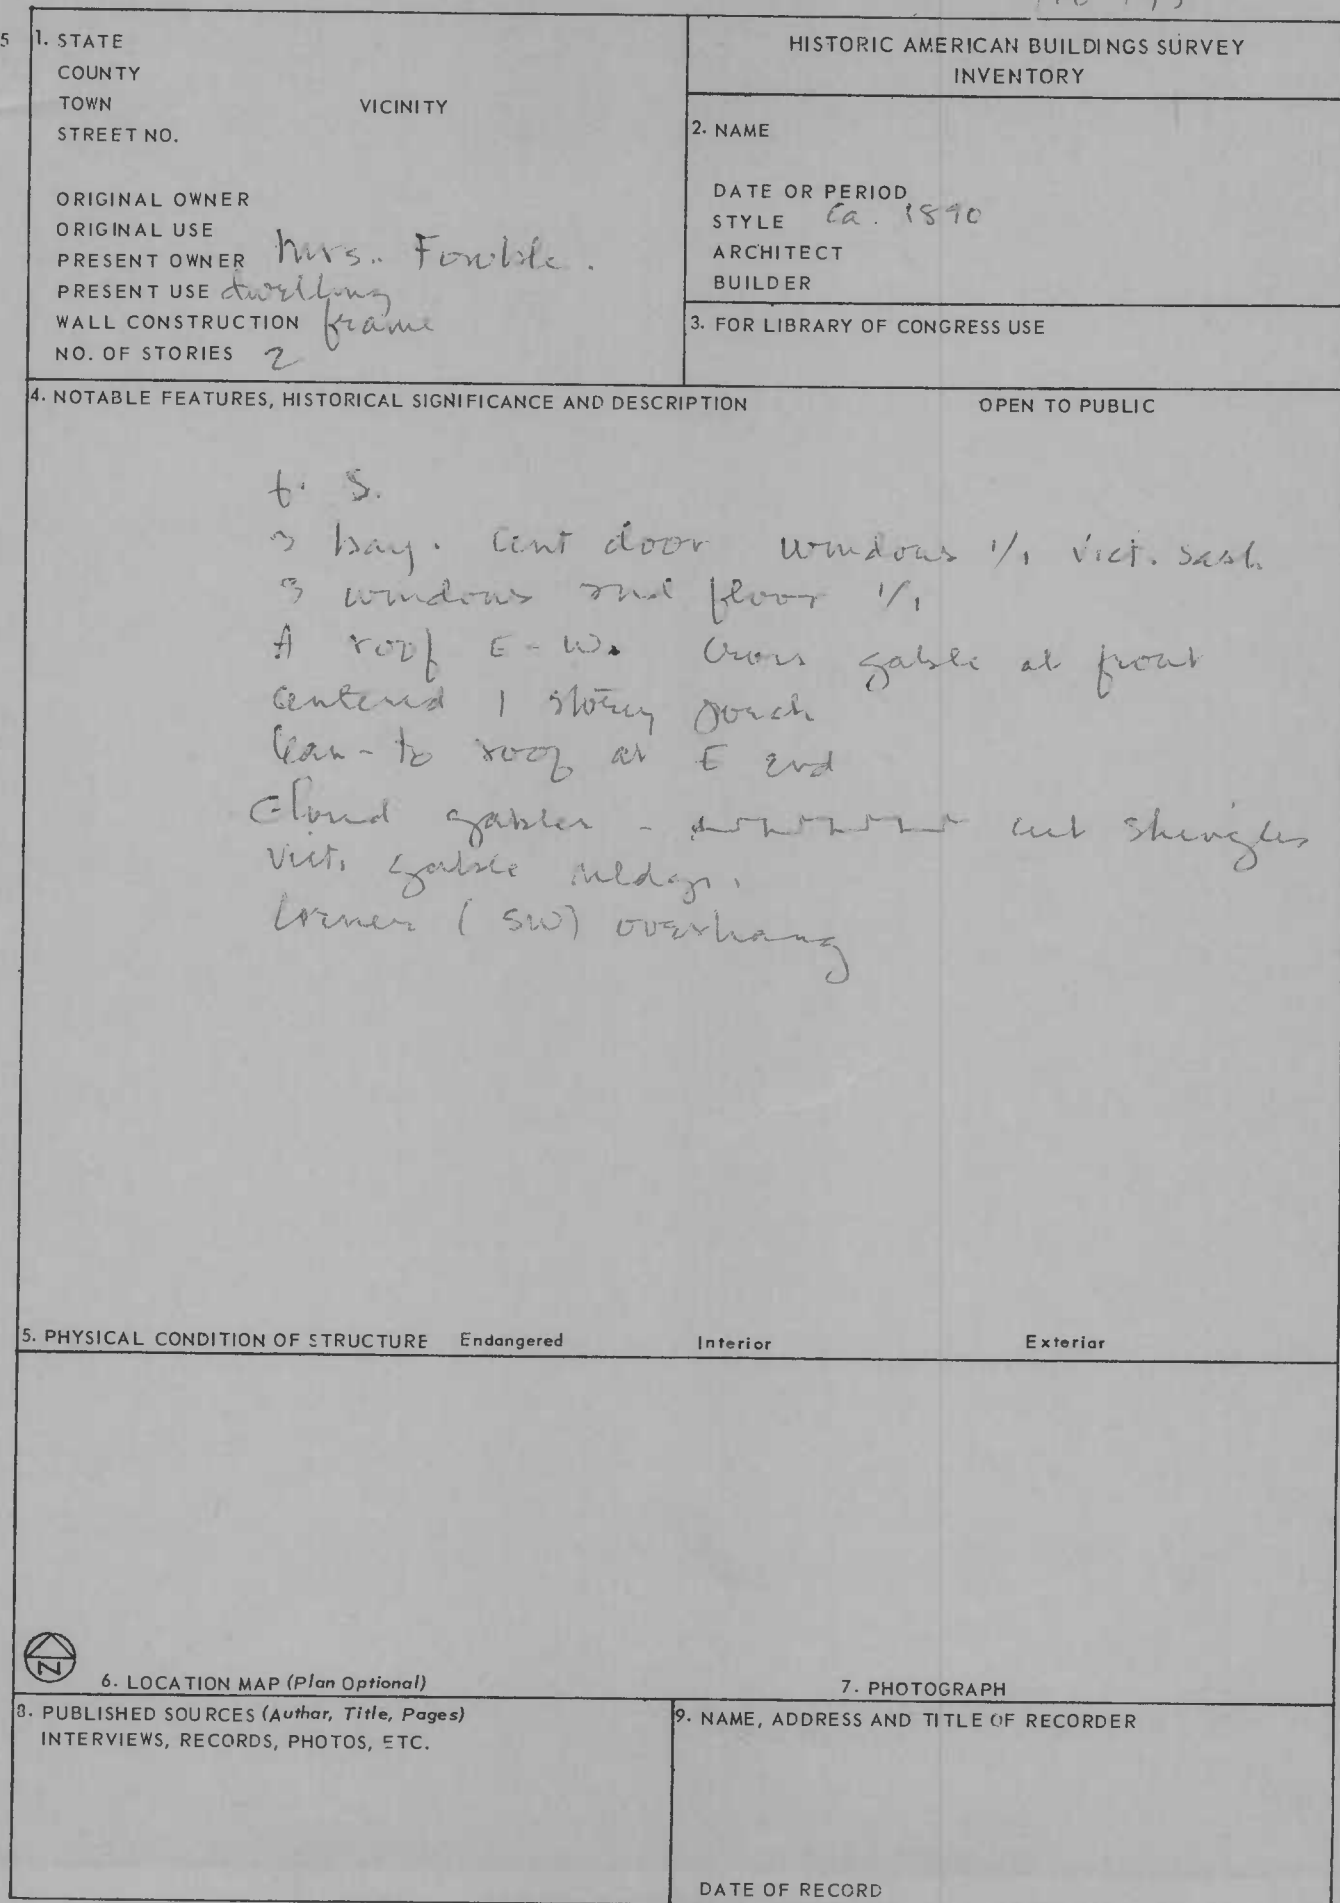 5
1. STATE
COUNTY
TOWN VICINITY
STREET NO.
ORIGINAL OWNER
ORIGINAL USE
PRESENT OWNER Mrs. Fowble.
PRESENT USE dwelling
WALL CONSTRUCTION frame
NO. OF STORIES 2
HISTORIC AMERICAN BUILDINGS SURVEY
INVENTORY
2. NAME
DATE OR PERIOD
STYLE Ca. 1890
ARCHITECT
BUILDER
3. FOR LIBRARY OF CONGRESS USE
4. NOTABLE FEATURES, HISTORICAL SIGNIFICANCE AND DESCRIPTION OPEN TO PUBLIC
f. S.
3 bay. Cent door windows 1/1 Vict. sash
3 windows 2nd floor 1/1
A roof E-W. Cross gable at front
Centered 1 story porch
lean-to roof at E end
Closed gables - cut shingles
Vict. gable mldgs.
Corner (SW) overhang
5. PHYSICAL CONDITION OF STRUCTURE Endangered Interior Exterior
N
6. LOCATION MAP (Plan Optional)
7. PHOTOGRAPH
8. PUBLISHED SOURCES (Author, Title, Pages)
INTERVIEWS, RECORDS, PHOTOS, ETC.
9. NAME, ADDRESS AND TITLE OF RECORDER
DATE OF RECORD